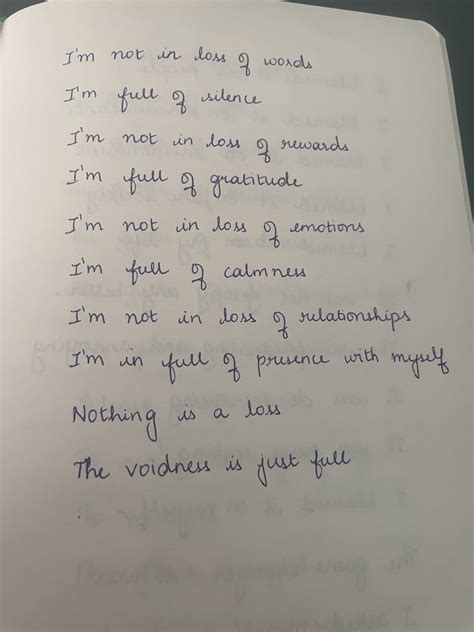 I'm not in loss of words
I'm full of silence
I'm not in loss of rewards
I'm full of gratitude
I'm not in loss of emotions
I'm full of calmness
I'm not in loss of relationships
I'm in full of presence with myself
Nothing is a loss
The voidness is just full